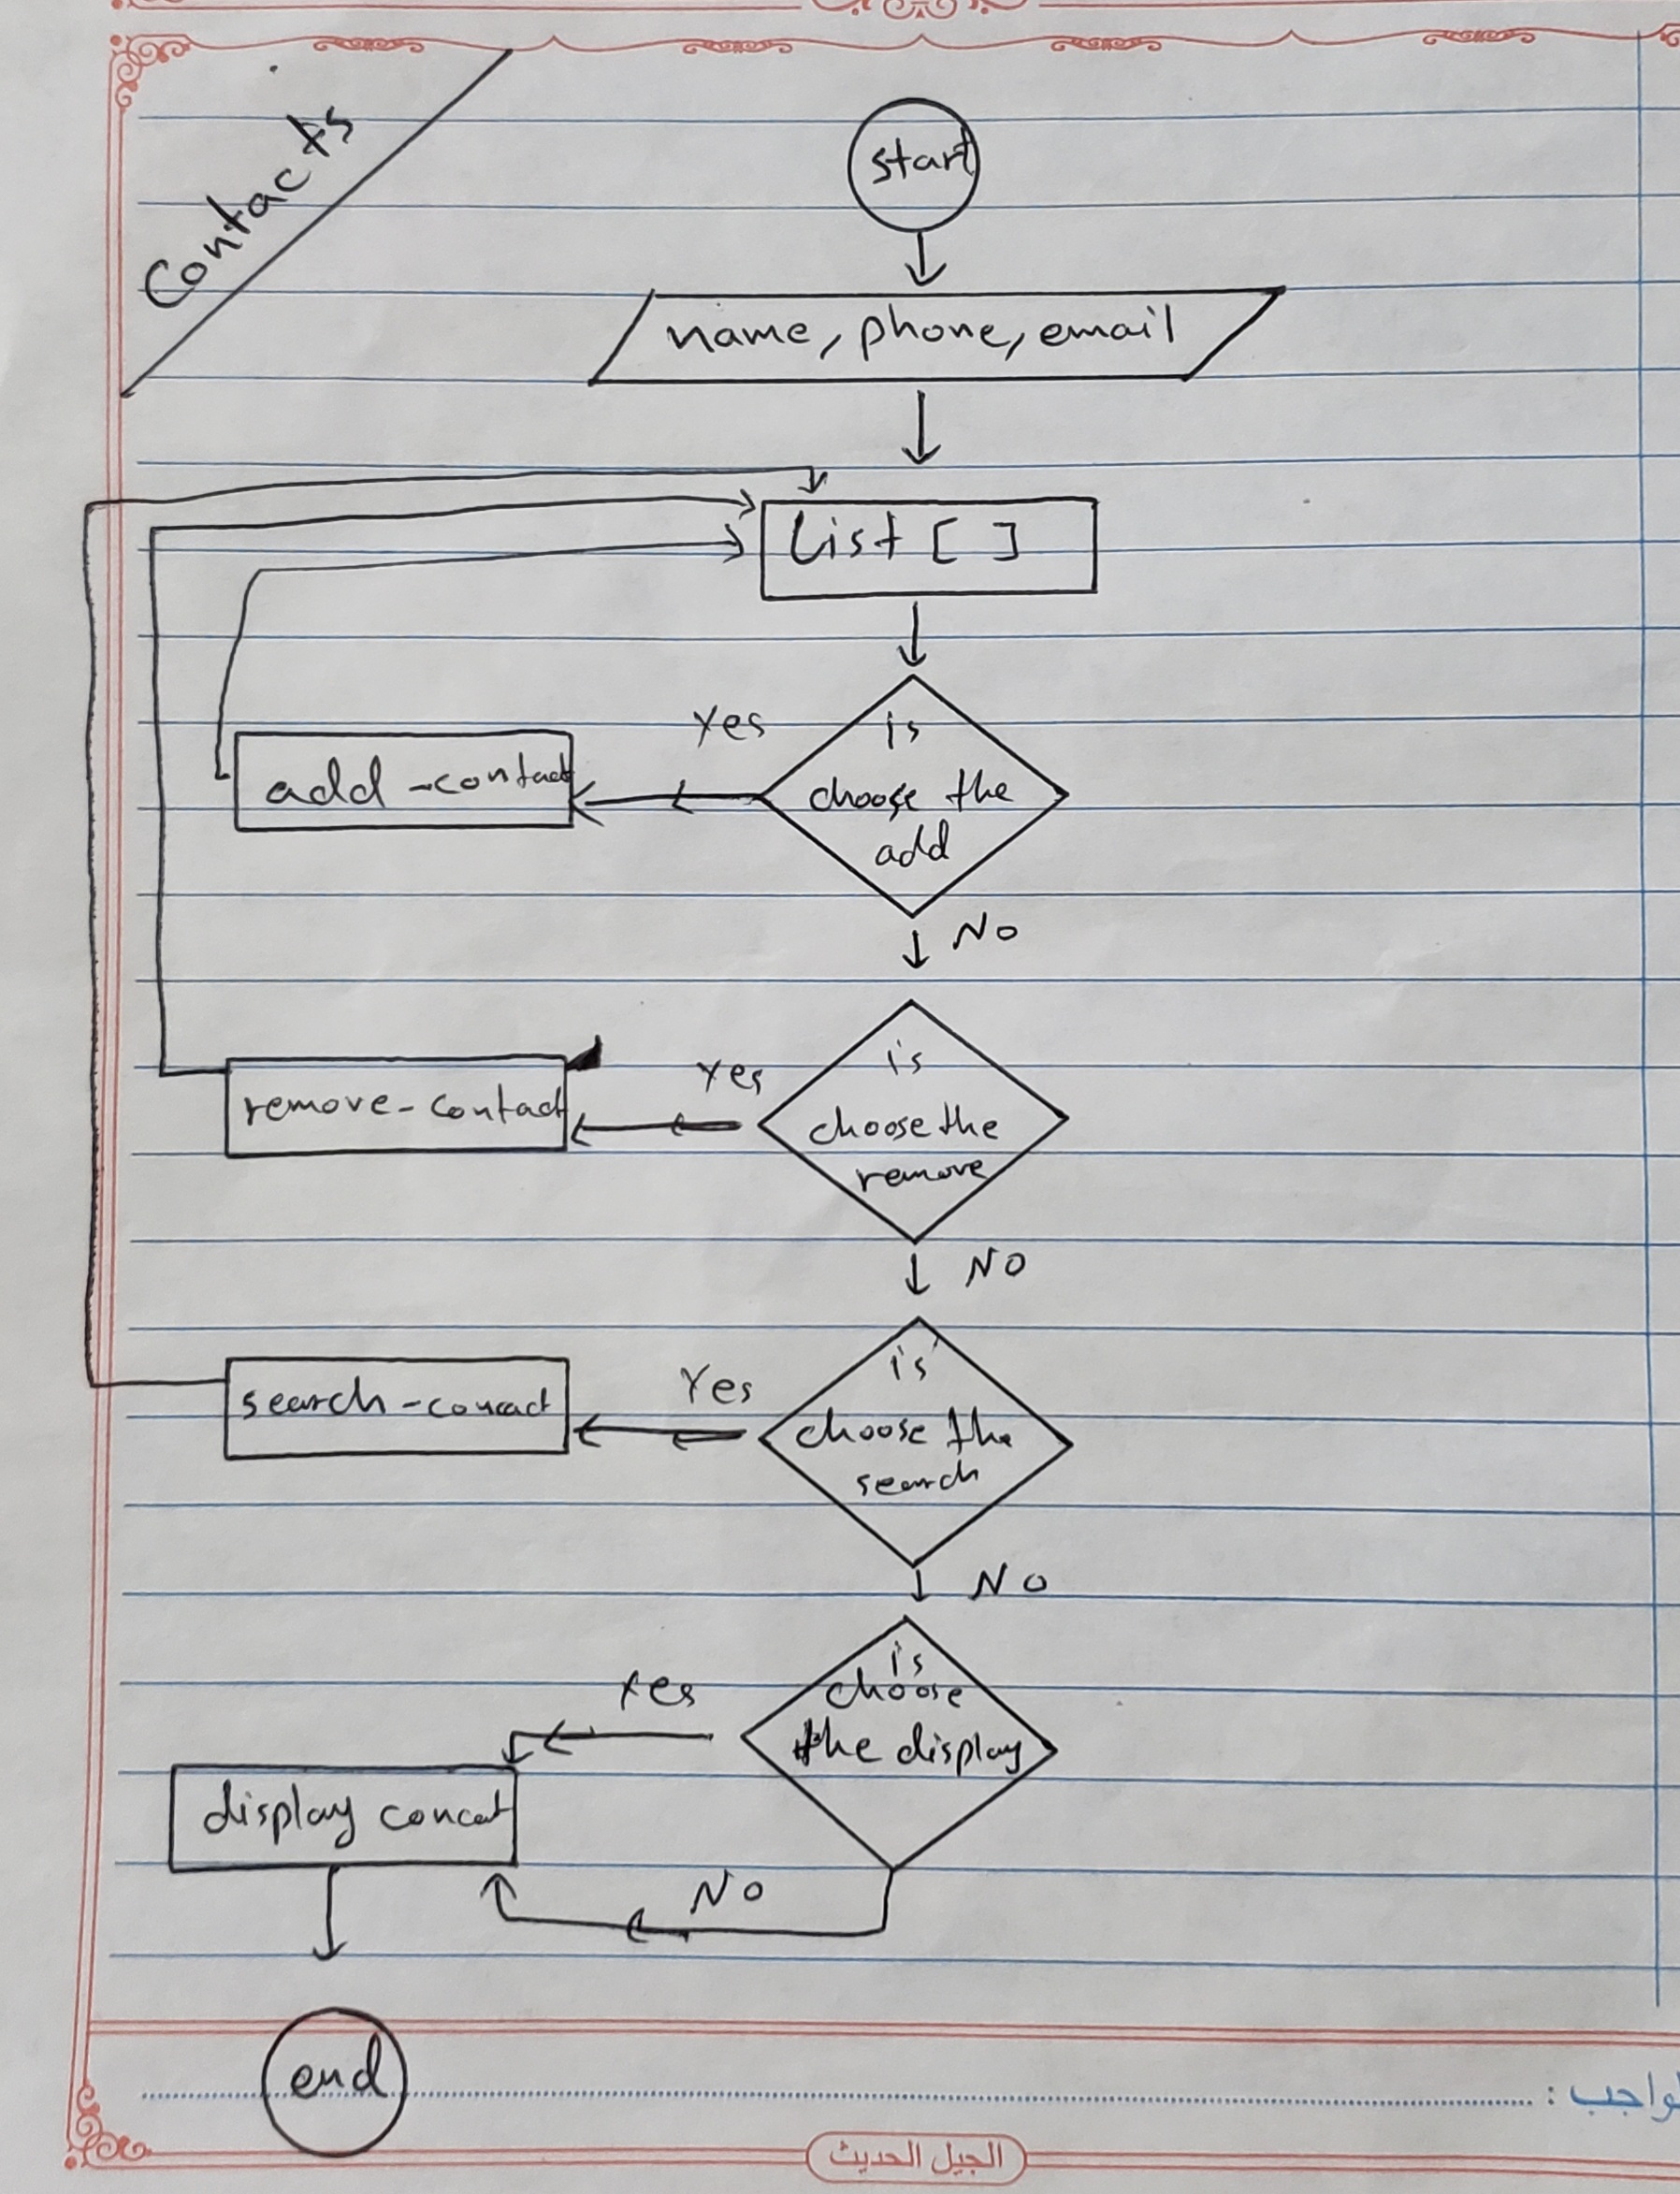 Contacts
start
name, phone, email
List [ ]
is
choose the
add
Yes
add-contact
No
is
choose the
remove
Yes
remove-contact
NO
is
choose the
search
Yes
search-concact
No
is
choose
the display
Yes
display concat
No
end
الجيل الحديث